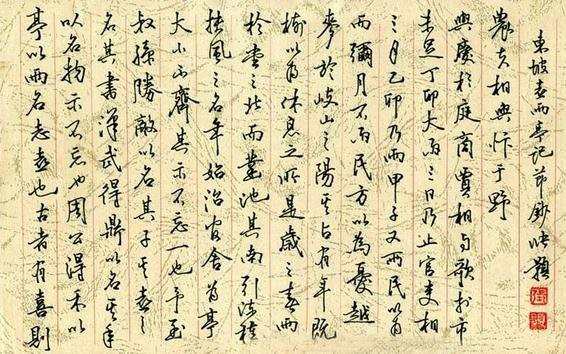 亭以雨名志喜也古者有喜則
以名物示不忘也周公得禾以
名其書漢武得鼎以名其年
叔孫勝敵以名其子其喜之
大小不齊其示不忘一也予至
扶風之名年始治官舍為亭
於堂之北而鑿池其南引流種
樹以為休息之所是歲之春雨
麥於岐山之陽其占有年既
而彌月不雨民方以為憂越
三月乙卯乃雨甲子又雨民以為
未足丁卯大雨三日乃止官吏相
與慶於庭商賈相與歌於市
農夫相與忭于野
東坡喜雨亭記節鈔